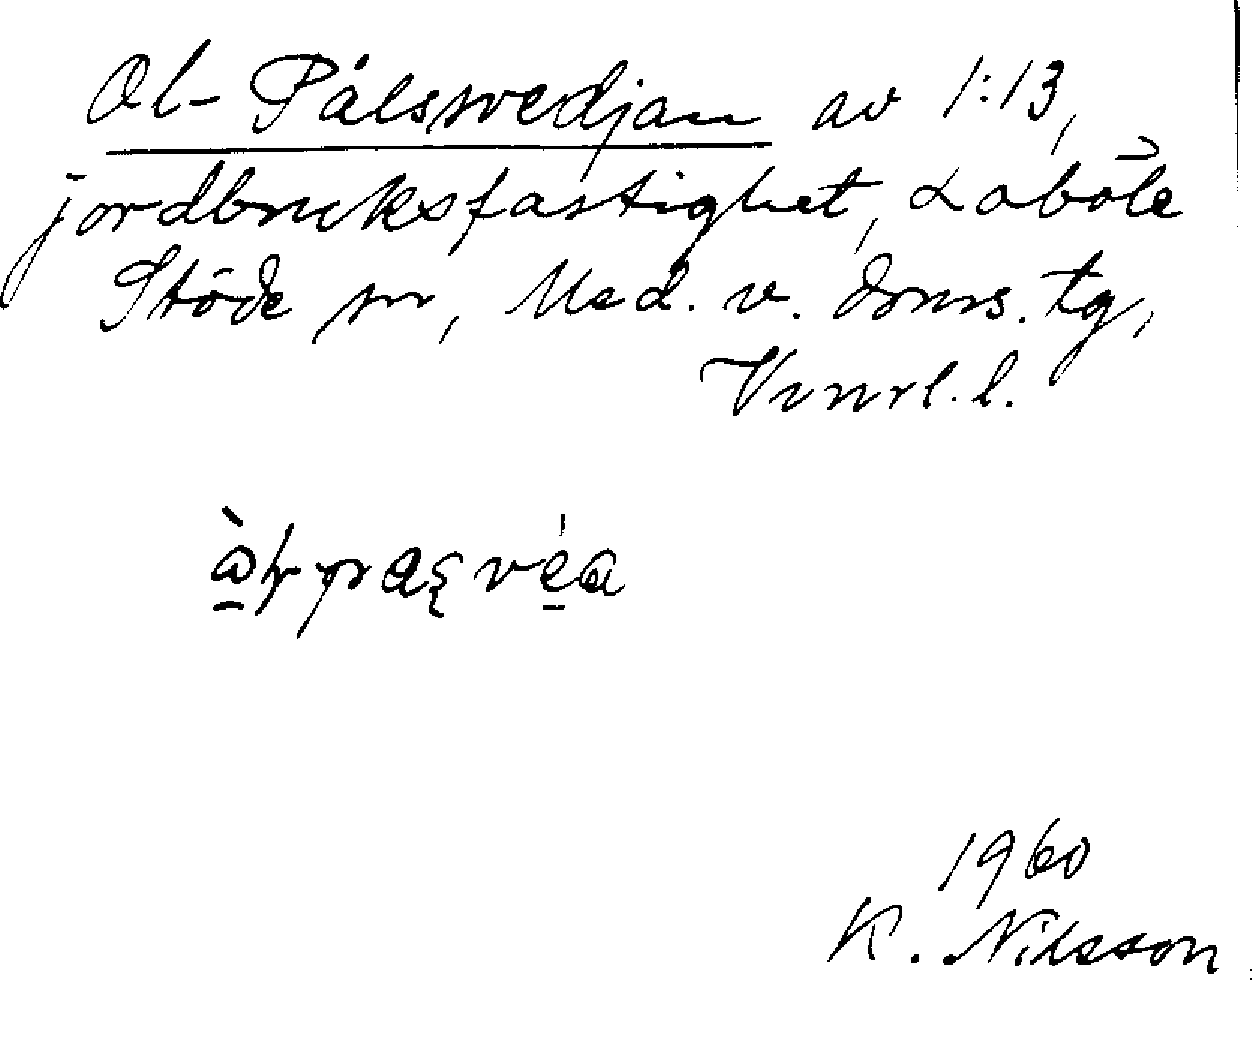 Ol-Pålssvedjan av 1:13,
jordbruksfastighet, Loböle
Stöde sn, Med. v. doms. tg,
Vnrl. l.
1960
K. Nilsson